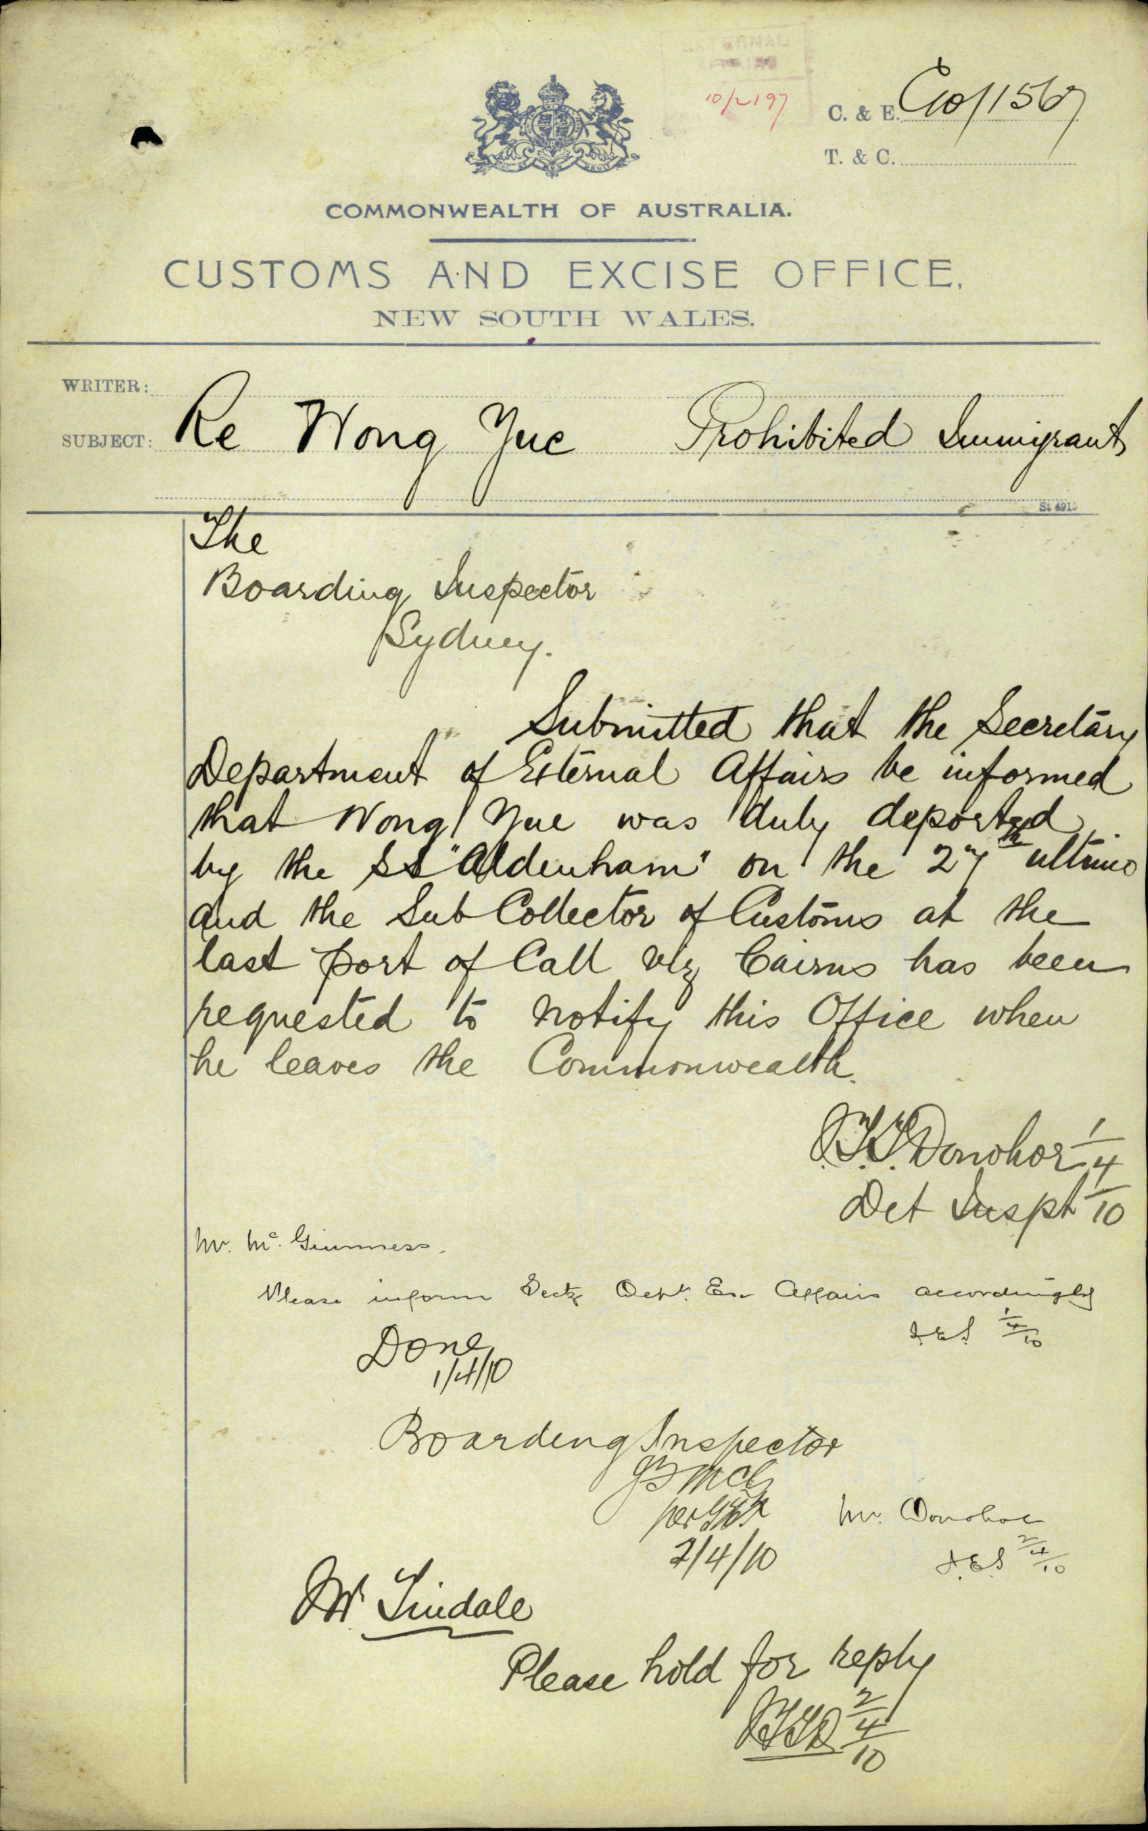 10/2197
C. & E. C10/1567
T. & C.
COMMONWEALTH OF AUSTRALIA.
CUSTOMS AND EXCISE OFFICE,
NEW SOUTH WALES.
WRITER:
SUBJECT: Re Wong Yue Prohibited Immigrant
St 491
The
Boarding Inspector
Sydney.
Submitted that the Secretary
Department of External Affairs be informed
that Wong Yue was duly deported
by the SS "Aldenham" on the 27th ultimo
and the Sub Collector of Customs at the
last port of Call viz Cairns has been
requested to notify this Office when
he leaves the Commonwealth.
J.T.T. Donohoe 1/4/10
Det Inspt
Mr. McGuinness.
Please inform Secty Dept. Ex. Affairs accordingly
J.E.S. 1/4/10
Done
1/4/10
Boarding Inspector
McG
per
2/4/10
Mr. Donohoe
J.E.S 2/4/10
Mr Tindale
Please hold for reply
JTTD 2/4/10